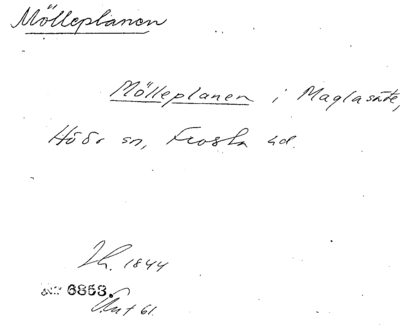 Mölleplanen
Mölleplanen i Maglasäte,
Höör sn, Frosta hd.
1844
6853.
61.